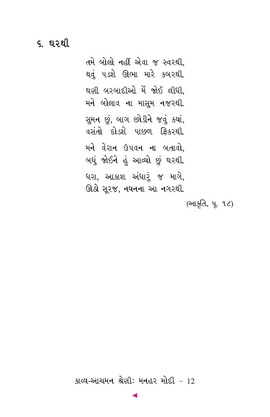 ૬. ઘરથી
તમે બોલો નહીં એવા જ સ્વરથી,
થવું પડશે ઊભા મારે કબરથી.
ઘણી બરબાદીઓ મેં જોઈ લીધી,
મને બોલાવ ના માસુમ નજરથી.
સુમન છું, બાગ છોડીને જવું ક્યાં,
વસંતો દોડશે પાછળ ફિકરથી.
મને વેરાન ઉપવન ના બતાવો,
બધું જોઈને હું આવ્યો છું ઘરથી.
ધરા, આકાશ અંધારું જ માગે,
ઊઠો સૂરજ, નયનના આ નગરથી.
(આકૃતિ, પૃ. ૧૮)
કાવ્ય-આચમન શ્રેણીઃ મનહર મોદી – 12